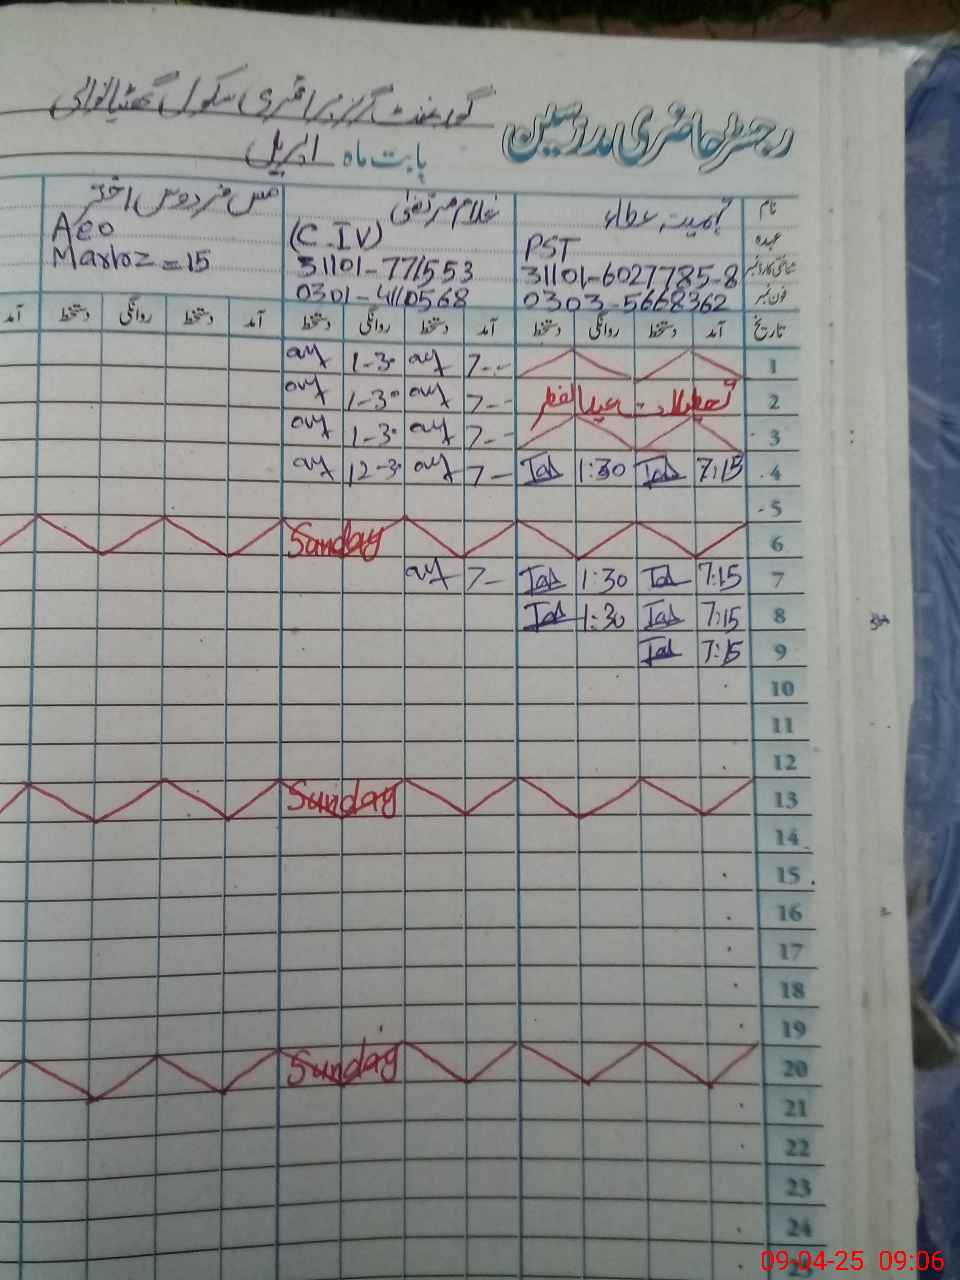 گورنمنٹ گرلز پرائمری سکول
رجسٹر حاضری مدرسین
بابت ماہ اپریل
نام عطاء غلام مرتضیٰ مس فردوس اختر
عہدہ PST (C.IV) Aeo
شناختی کارڈ نمبر 31101-6027785-8 31101-771553 Markoz=15
فون نمبر 0303-5668362 0301-4110568
تاریخ آمد دستخط روانگی دستخط آمد دستخط روانگی دستخط آمد دستخط روانگی دستخط آمد
1 7-- 1-30
2 تعطیلات عید الفطر 7-- 1-30
3 7-- 1-30
4 7:15 1:30 7-- 12-30
5
6 Sunday
7 7:15 1:30 7--
8 7:15 1:30
9 7:15
10
11
12
13 Sunday
14
15
16
17
18
19
20 Sunday
21
22
23
24
09-04-25 09:06